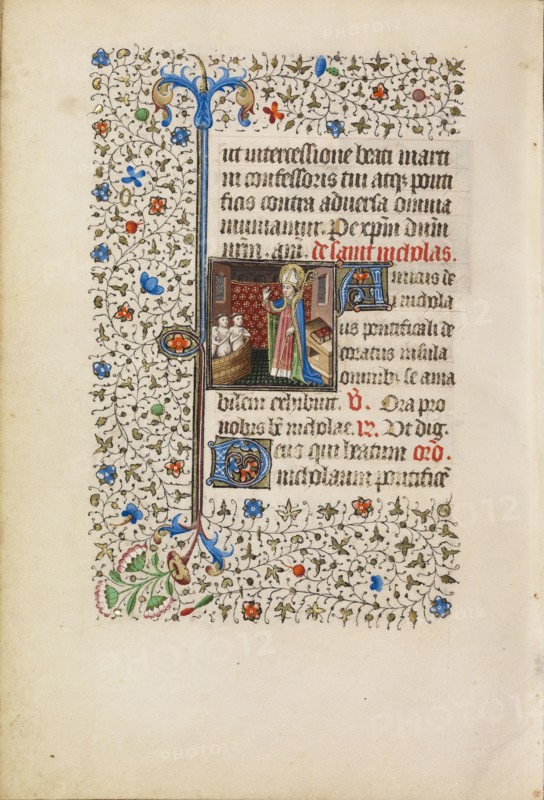 ut intercessione beati marti
ni confessoris tui atq₃ ponti
ficis contra adversa omnia
muniamur. Per xp̄m dūm
nrm̄. am̄. de saint nicholas.
Amicus de
i nichola
us pontificali de
coratus insula
omnib₃ se ama
bilem exhibuit. V̄. Ora pro
nobis b̄e nicholae. R̄. Ut dig
Deus qui beatum orō.
nicholaum pontificē
PHOTO12